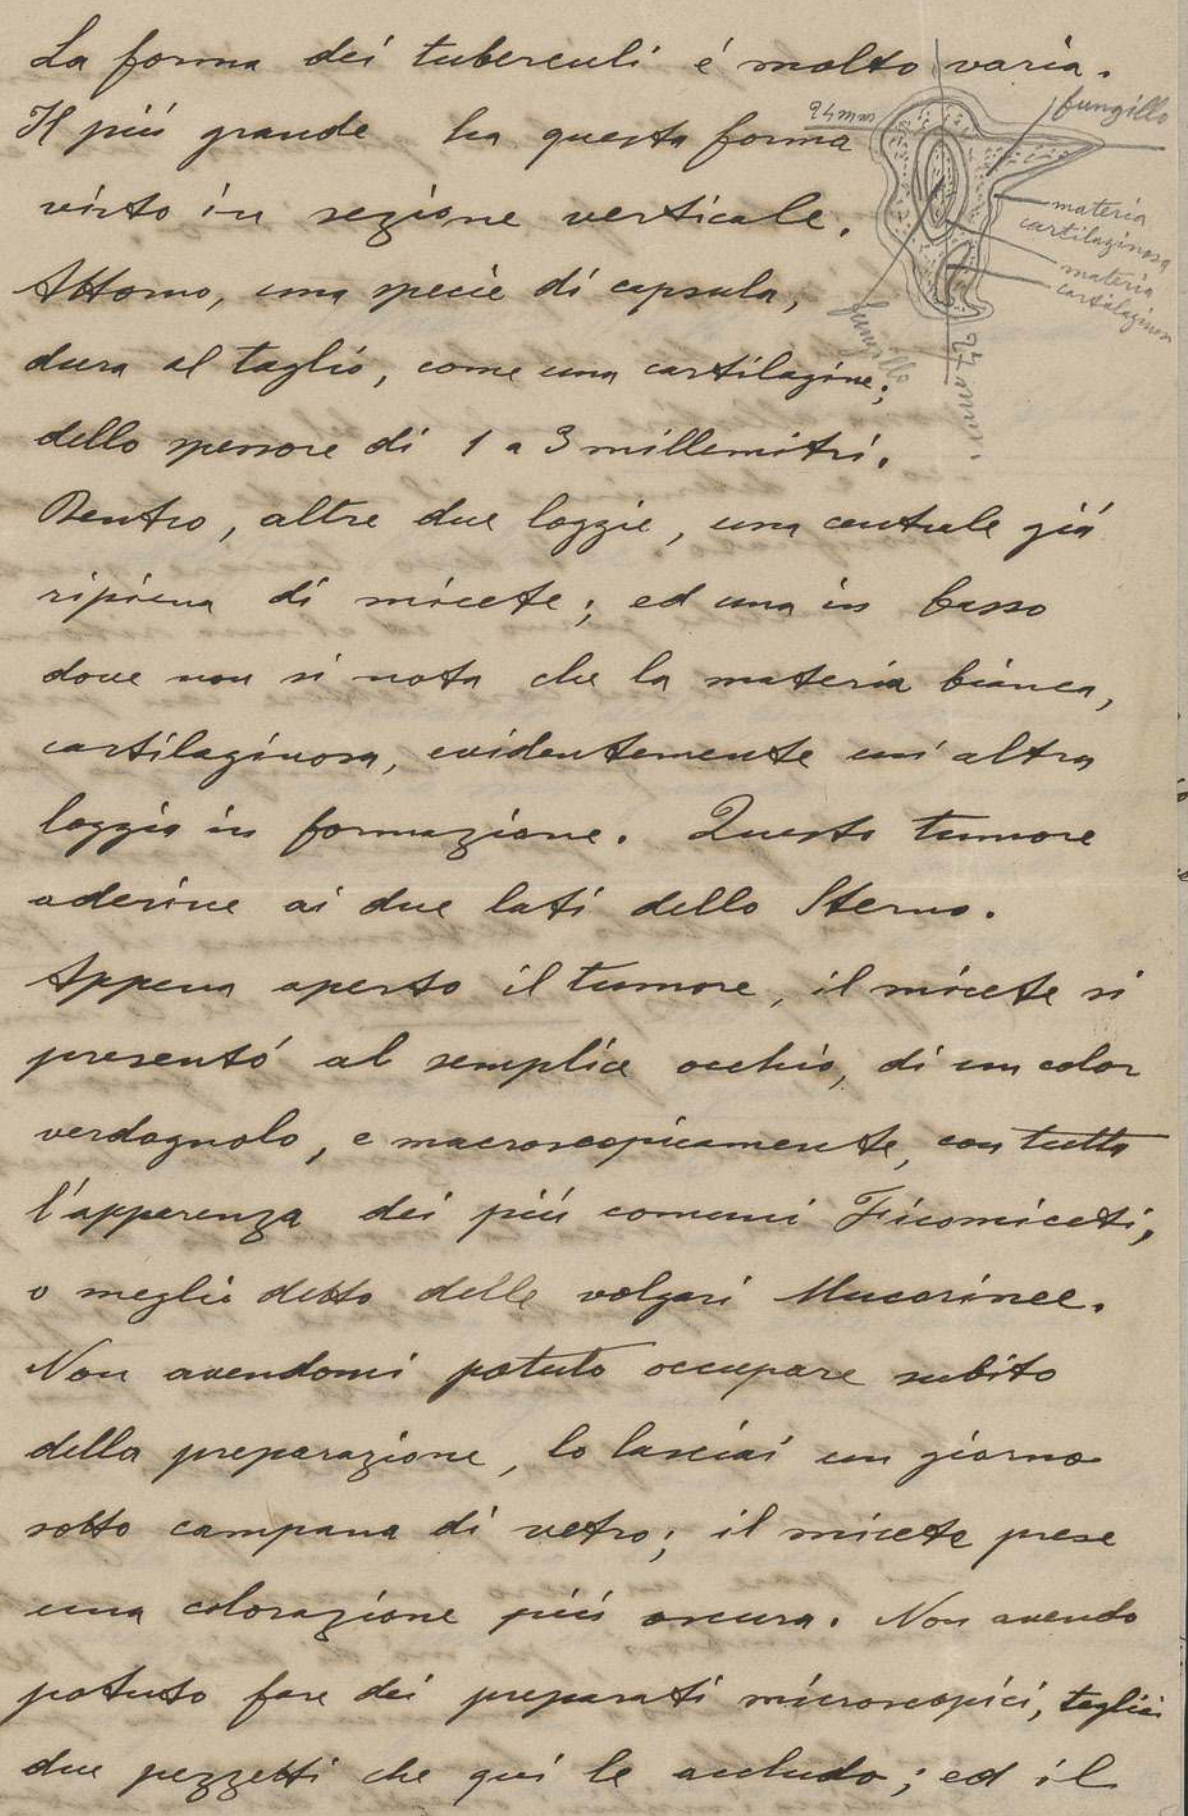 La forma dei tuberculi é molto varia.
Il piú grande ha questa forma
visto in sezione verticale.
Attorno, una specie di capsula,
dura al taglio, come una cartilagine;
dello spessore di 1 a 3 millemitri.
Dentro, altre due loggie, una centrale giá
ripiena di micete; ed una in basso
dove non si nota che la materia bianca,
cartilaginosa, evidentemente un'altra
loggia in formazione. Questo tumore
aderiva ai due lati dello Sterno.
Appena aperto il tumore, il micete si
presentó al semplice occhio, di un color
verdognolo, e macroscopicamente, con tutta
l'apparenza dei piú comuni Ficomiceti,
o meglio detto delle volgari Mucorinee.
Non avendomi potuto occupare subito
della preparazione, lo lasciai un giorno
sotto campana di vetro; il micete prese
una colorazione piú oscura. Non avendo
potuto fare dei preparati microscopici, tagliai
due pezzetti che qui le accludo; ed il
24mm
fungillo
materia
cartilaginosa
materia
cartilaginosa
fungillo
42 mm.